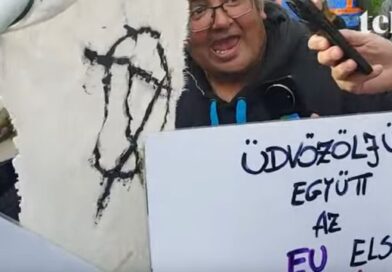 te
ÜDVÖZÖLJÜ
EGYÜTT
AZ
EU ELS